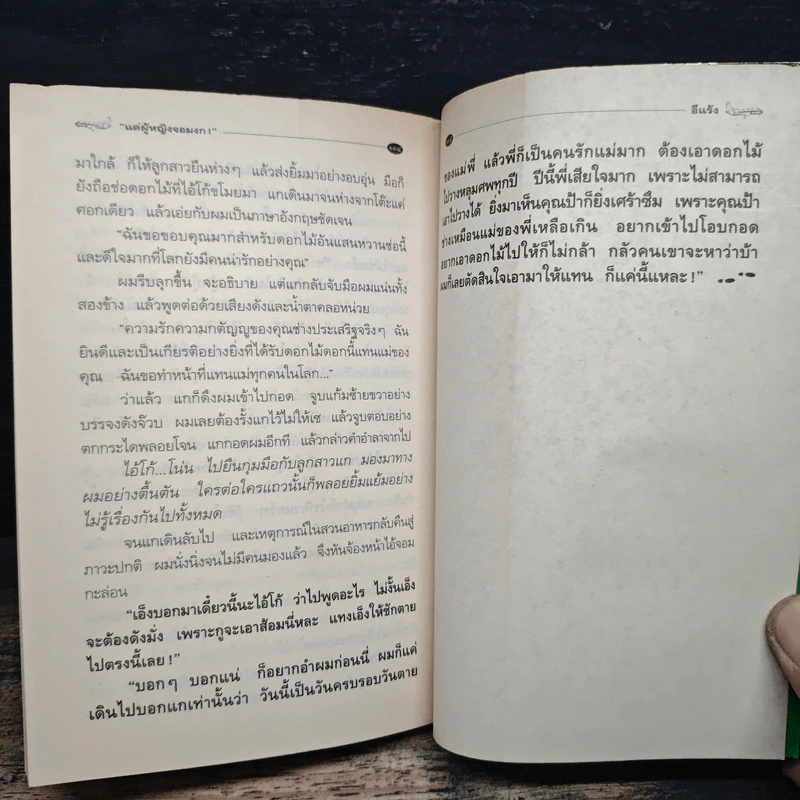 "แต่ผู้หญิงจอมงก!"
มาใกล้ ก็ให้ลูกสาวยืนห่างๆ แล้วส่งยิ้มมาอย่างอบอุ่น มือก็
ยังถือช่อดอกไม้ที่ไอ้โก้ขโมยมา แกเดินมาจนห่างจากโต๊ะแค่
ศอกเดียว แล้วเอ่ยกับผมเป็นภาษาอังกฤษชัดเจน
"ฉันขอขอบคุณมากสำหรับดอกไม้อันแสนหวานช่อนี้
และดีใจมากที่โลกยังมีคนน่ารักอย่างคุณ"
ผมรีบลุกขึ้น จะอธิบาย แต่แกกลับจับมือผมแน่นทั้ง
สองข้าง แล้วพูดต่อด้วยเสียงดังและน้ำตาคลอหน่วย
"ความรักความกตัญญูของคุณช่างประเสริฐจริงๆ ฉัน
ยินดีและเป็นเกียรติอย่างยิ่งที่ได้รับดอกไม้ดอกนี้แทนแม่ของ
คุณ ฉันขอทำหน้าที่แทนแม่ทุกคนในโลก..."
ว่าแล้ว แกก็ดึงผมเข้าไปกอด จูบแก้มซ้ายขวาอย่าง
บรรจงดังจ๊วบ ผมเลยต้องรั้งแกไว้ไม่ให้เซ แล้วจูบตอบอย่าง
ตกกระไดพลอยโจน แกกอดผมอีกที แล้วกล่าวคำอำลาจากไป
ไอ้โก้...โน่น ไปยืนกุมมือกับลูกสาวแก มองมาทาง
ผมอย่างตื้นตัน ใครต่อใครแถวนั้นก็พลอยยิ้มแย้มอย่าง
ไม่รู้เรื่องกันไปทั้งหมด
จนแกเดินลับไป และเหตุการณ์ในสวนอาหารกลับคืนสู่
ภาวะปกติ ผมนั่งนิ่งจนไม่มีคนมองแล้ว จึงหันจ้องหน้าไอ้จอม
กะล่อน
"เอ็งบอกมาเดี๋ยวนี้นะไอ้โก้ ว่าไปพูดอะไร ไม่งั้นเอ็ง
จะต้องดังมั่ง เพราะกูจะเอาส้อมนี่หละ แทงเอ็งให้ชักตาย
ไปตรงนี้เลย!"
"บอกๆ บอกแน่ ก็อยากอำผมก่อนนี่ ผมก็แค่
เดินไปบอกแกเท่านั้นว่า วันนี้เป็นวันครบรอบวันตาย
อีแร้ง
ของแม่พี่ แล้วพี่ก็เป็นคนรักแม่มาก ต้องเอาดอกไม้
ไปวางหลุมศพทุกปี ปีนี้พี่เสียใจมาก เพราะไม่สามารถ
เอาไปวางได้ ยิ่งมาเห็นคุณป้าก็ยิ่งเศร้าซึม เพราะคุณป้า
ช่างเหมือนแม่ของพี่เหลือเกิน อยากเข้าไปโอบกอด
อยากเอาดอกไม้ไปให้ก็ไม่กล้า กลัวคนเขาจะหาว่าบ้า
ผมก็เลยตัดสินใจเอามาให้แทน ก็แค่นี้แหละ!"